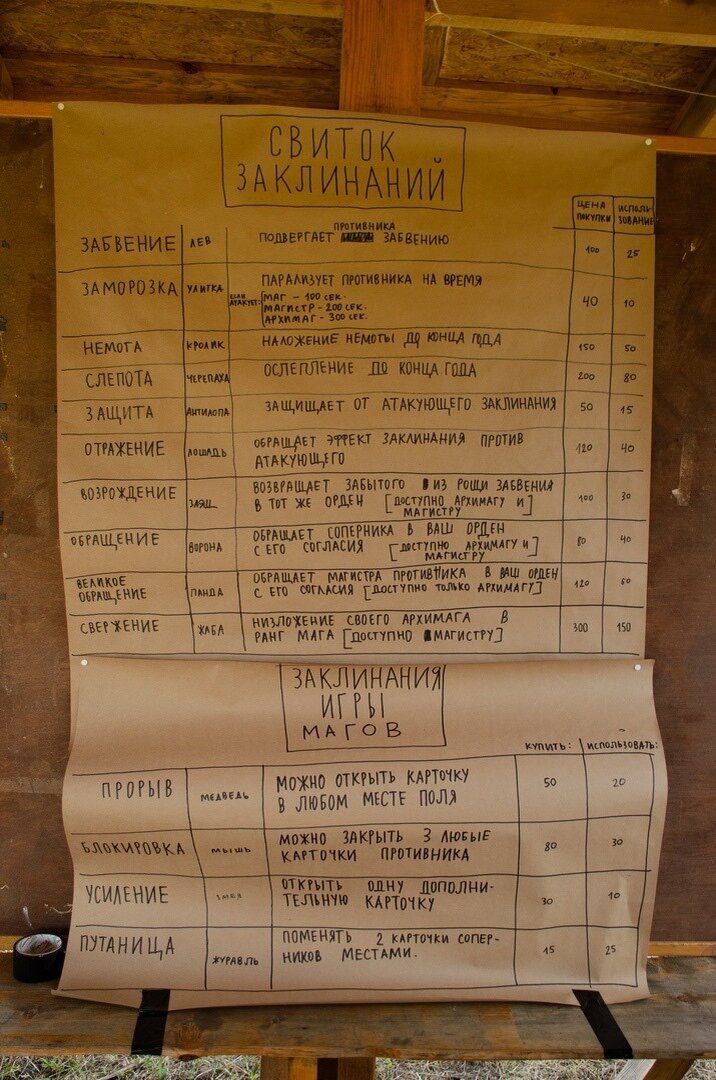 СВИТОК
ЗАКЛИНАНИЙ
ЦЕНА ПОКУПКИ ИСПОЛЬ-ЗОВАНИЕ
ЗАБВЕНИЕ ЛЕВ ПОДВЕРГАЕТ ПРОТИВНИКА ЗАБВЕНИЮ 100 25
ЗАМОРОЗКА УЛИТКА ПАРАЛИЗУЕТ ПРОТИВНИКА НА ВРЕМЯ 40 10
ЕСЛИ АТАКУЕТ: МАГ - 100 СЕК.
МАГИСТР - 200 СЕК.
АРХИМАГ - 300 СЕК.
НЕМОТА КРОЛИК НАЛОЖЕНИЕ НЕМОТЫ ДО КОНЦА ГОДА 150 50
СЛЕПОТА ЧЕРЕПАХА ОСЛЕПЛЕНИЕ ДО КОНЦА ГОДА 200 80
ЗАЩИТА АНТИЛОПА ЗАЩИЩАЕТ ОТ АТАКУЮЩЕГО ЗАКЛИНАНИЯ 50 15
ОТРАЖЕНИЕ ЛОШАДЬ ОБРАЩАЕТ ЭФФЕКТ ЗАКЛИНАНИЯ ПРОТИВ 120 40
АТАКУЮЩЕГО
ВОЗРОЖДЕНИЕ ЗАЯЦ ВОЗВРАЩАЕТ ЗАБЫТОГО ИЗ РОЩИ ЗАБВЕНИЯ 100 30
В ТОТ ЖЕ ОРДЕН [ДОСТУПНО АРХИМАГУ И
МАГИСТРУ]
ОБРАЩЕНИЕ ВОРОНА ОБРАЩАЕТ СОПЕРНИКА В ВАШ ОРДЕН 80 40
С ЕГО СОГЛАСИЯ [ДОСТУПНО АРХИМАГУ И
МАГИСТРУ]
ВЕЛИКОЕ ОБРАЩЕНИЕ ПАНДА ОБРАЩАЕТ МАГИСТРА ПРОТИВНИКА В ВАШ ОРДЕН 120 60
С ЕГО СОГЛАСИЯ [ДОСТУПНО ТОЛЬКО АРХИМАГУ]
СВЕРЖЕНИЕ ЖАБА НИЗЛОЖЕНИЕ СВОЕГО АРХИМАГА В 300 150
РАНГ МАГА [ДОСТУПНО МАГИСТРУ]
ЗАКЛИНАНИЯ
ИГРЫ
МАГОВ
КУПИТЬ: ИСПОЛЬЗОВАТЬ:
ПРОРЫВ МЕДВЕДЬ МОЖНО ОТКРЫТЬ КАРТОЧКУ 50 20
В ЛЮБОМ МЕСТЕ ПОЛЯ
БЛОКИРОВКА МЫШЬ МОЖНО ЗАКРЫТЬ 3 ЛЮБЫЕ 80 30
КАРТОЧКИ ПРОТИВНИКА
УСИЛЕНИЕ ЗМЕЯ ОТКРЫТЬ ОДНУ ДОПОЛНИ- 30 10
ТЕЛЬНУЮ КАРТОЧКУ
ПУТАНИЦА ЖУРАВЛЬ ПОМЕНЯТЬ 2 КАРТОЧКИ СОПЕР- 15 25
НИКОВ МЕСТАМИ.